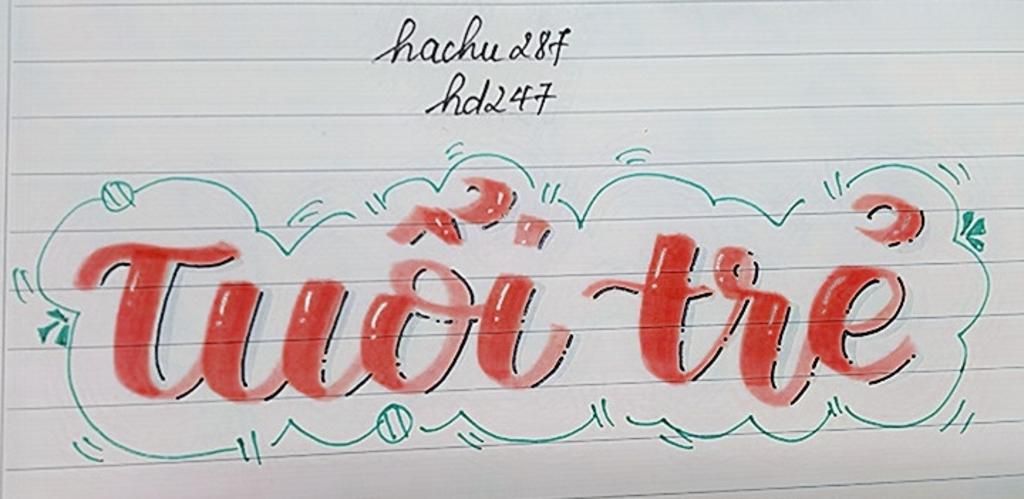 hachu287
hd247
Tuổi trẻ